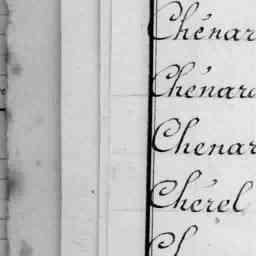 Chénar
Chénard
Chenar
Chérel
Ch